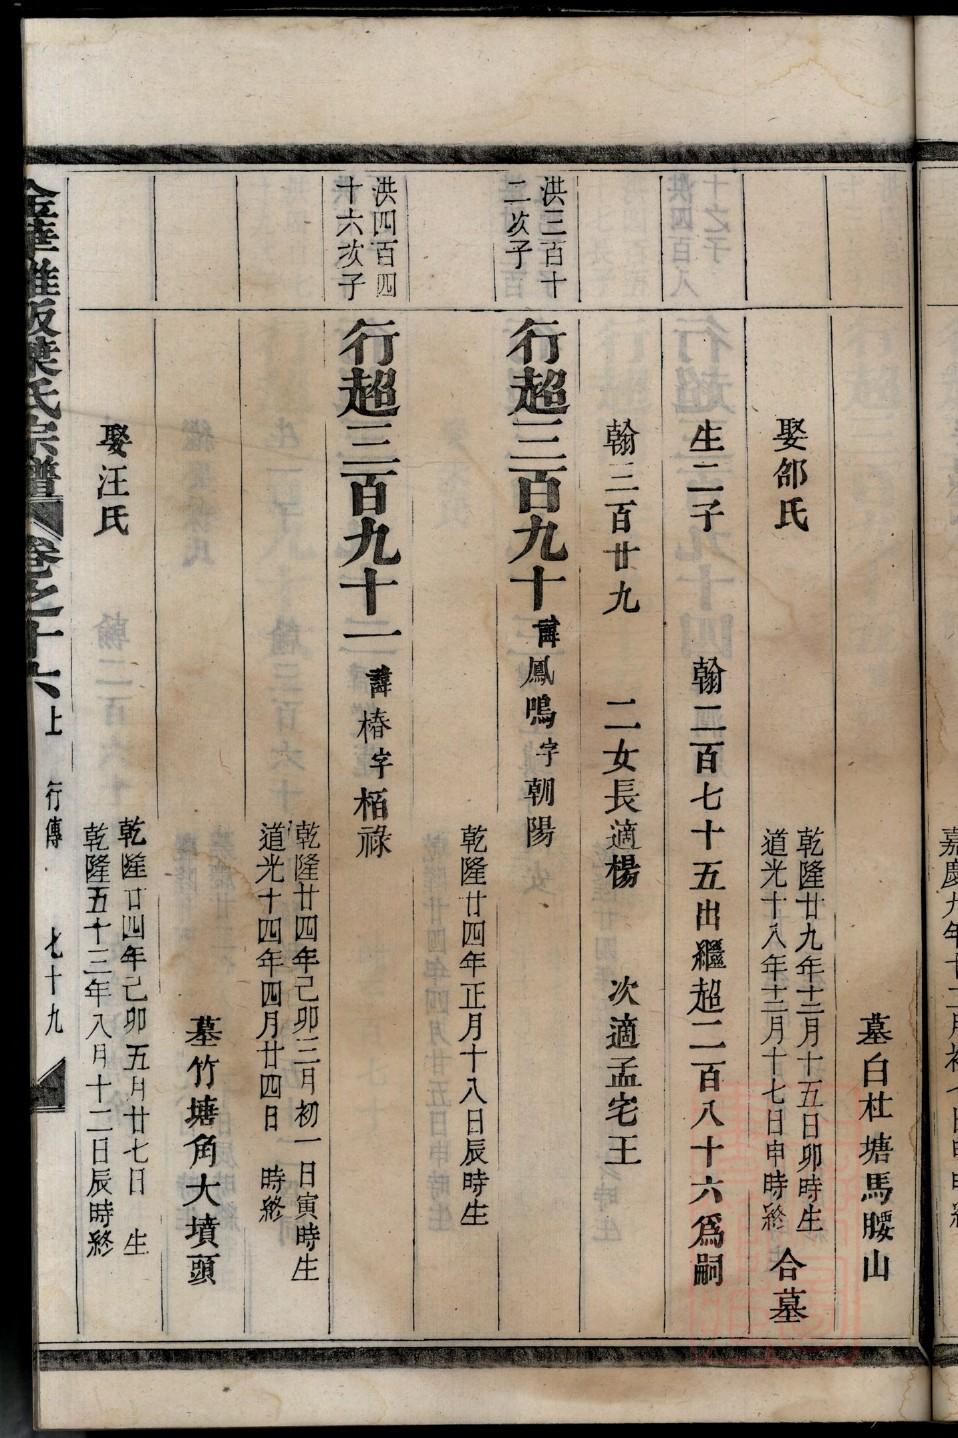 墓白杜塘馬腰山
娶邰氏
乾隆廿九年十二月十五日卯時生
道光十八年十二月十七日申時終
合墓
生二子
翰二百七十五出繼超二百八十六爲嗣
翰三百廿九
二女長適楊
次適孟宅王
洪三百十
二次子
行超三百九十
諱鳳鳴字朝陽
乾隆廿四年正月十八日辰時生
洪四百四
十六次子
行超三百九十一
諱椿字栢祿
乾隆廿四年己卯三月初一日寅時生
道光十四年四月廿四日 時終
墓竹塘角大墳頭
娶汪氏
乾隆廿四年己卯五月廿七日 生
乾隆五十三年八月十二日辰時終
葉氏宗譜
卷之十六
上
行傳
七十九